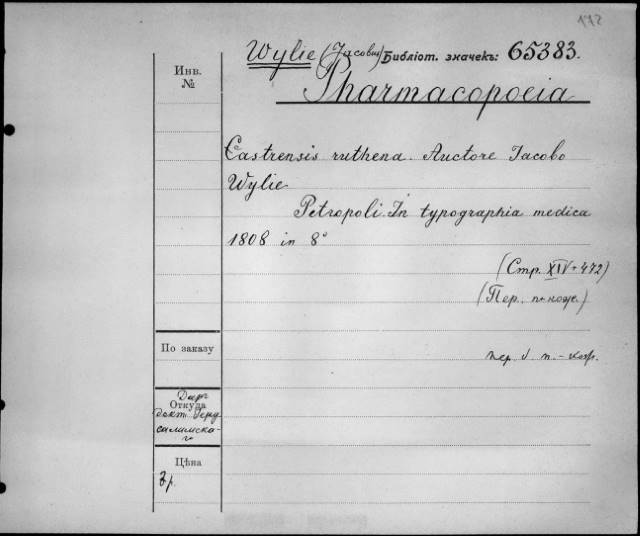 172
Wylie (Jacobus) Библiот. значекъ: 65383.
Инв.
№
Pharmacopoeia
Castrensis ruthena. Auctore Jacobo
Wylie
Petropoli. In typographia medica
1808 in 8°
(Стр. XIV + 472)
(Пер. п + кож.)
По заказу
пер. п. - кож.
Даръ
Откуда
докт. Iеру
салимска-
го
Цѣна
р.